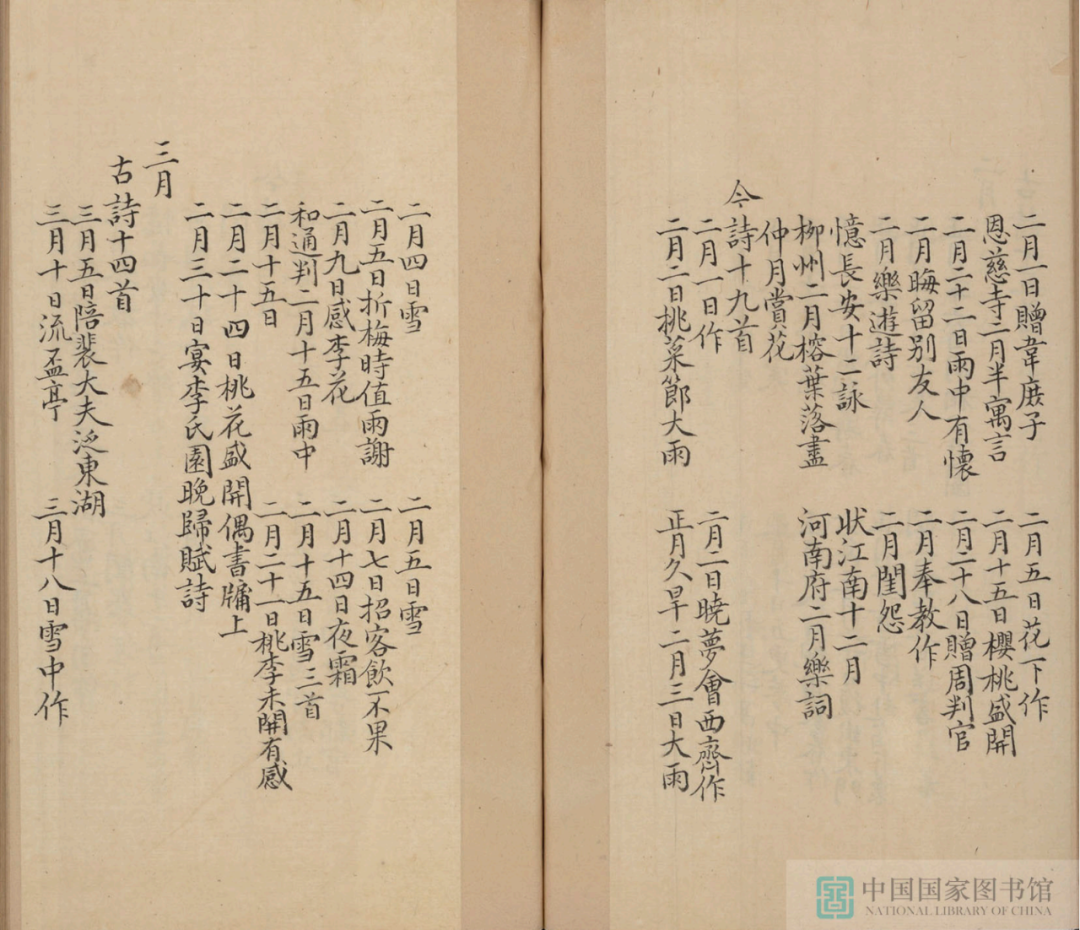 二月一日贈韋庶子 二月五日花下作
恩慈寺二月半寓言 二月十五日櫻桃盛開
二月二十二日雨中有懷 二月二十八日贈周判官
二月晦留別友人 二月奉教作
二月樂遊詩 二月閨怨
憶長安十二詠 狀江南十二月
柳州二月榕葉落盡 河南府二月樂詞
仲月賞花
今詩十九首
二月一日作 二月二日曉夢會西齋作
二月二日桃菜節大雨 正月久旱二月三日大雨
二月四日雪 二月五日雪
二月五日折梅時值雨謝 二月七日招客飲不果
二月九日感李花 二月十四日夜霜
和通判二月十五日雨中 二月十五日雪三首
二月十五日 二月二十一日桃李未開有感
二月二十四日桃花盛開偶書牖上
二月三十日宴李氏園晚歸賦詩
三月
古詩十四首
三月五日陪裴大夫泛東湖
三月十日流盃亭 三月十八日雪中作
中国国家图书馆
NATIONAL LIBRARY OF CHINA